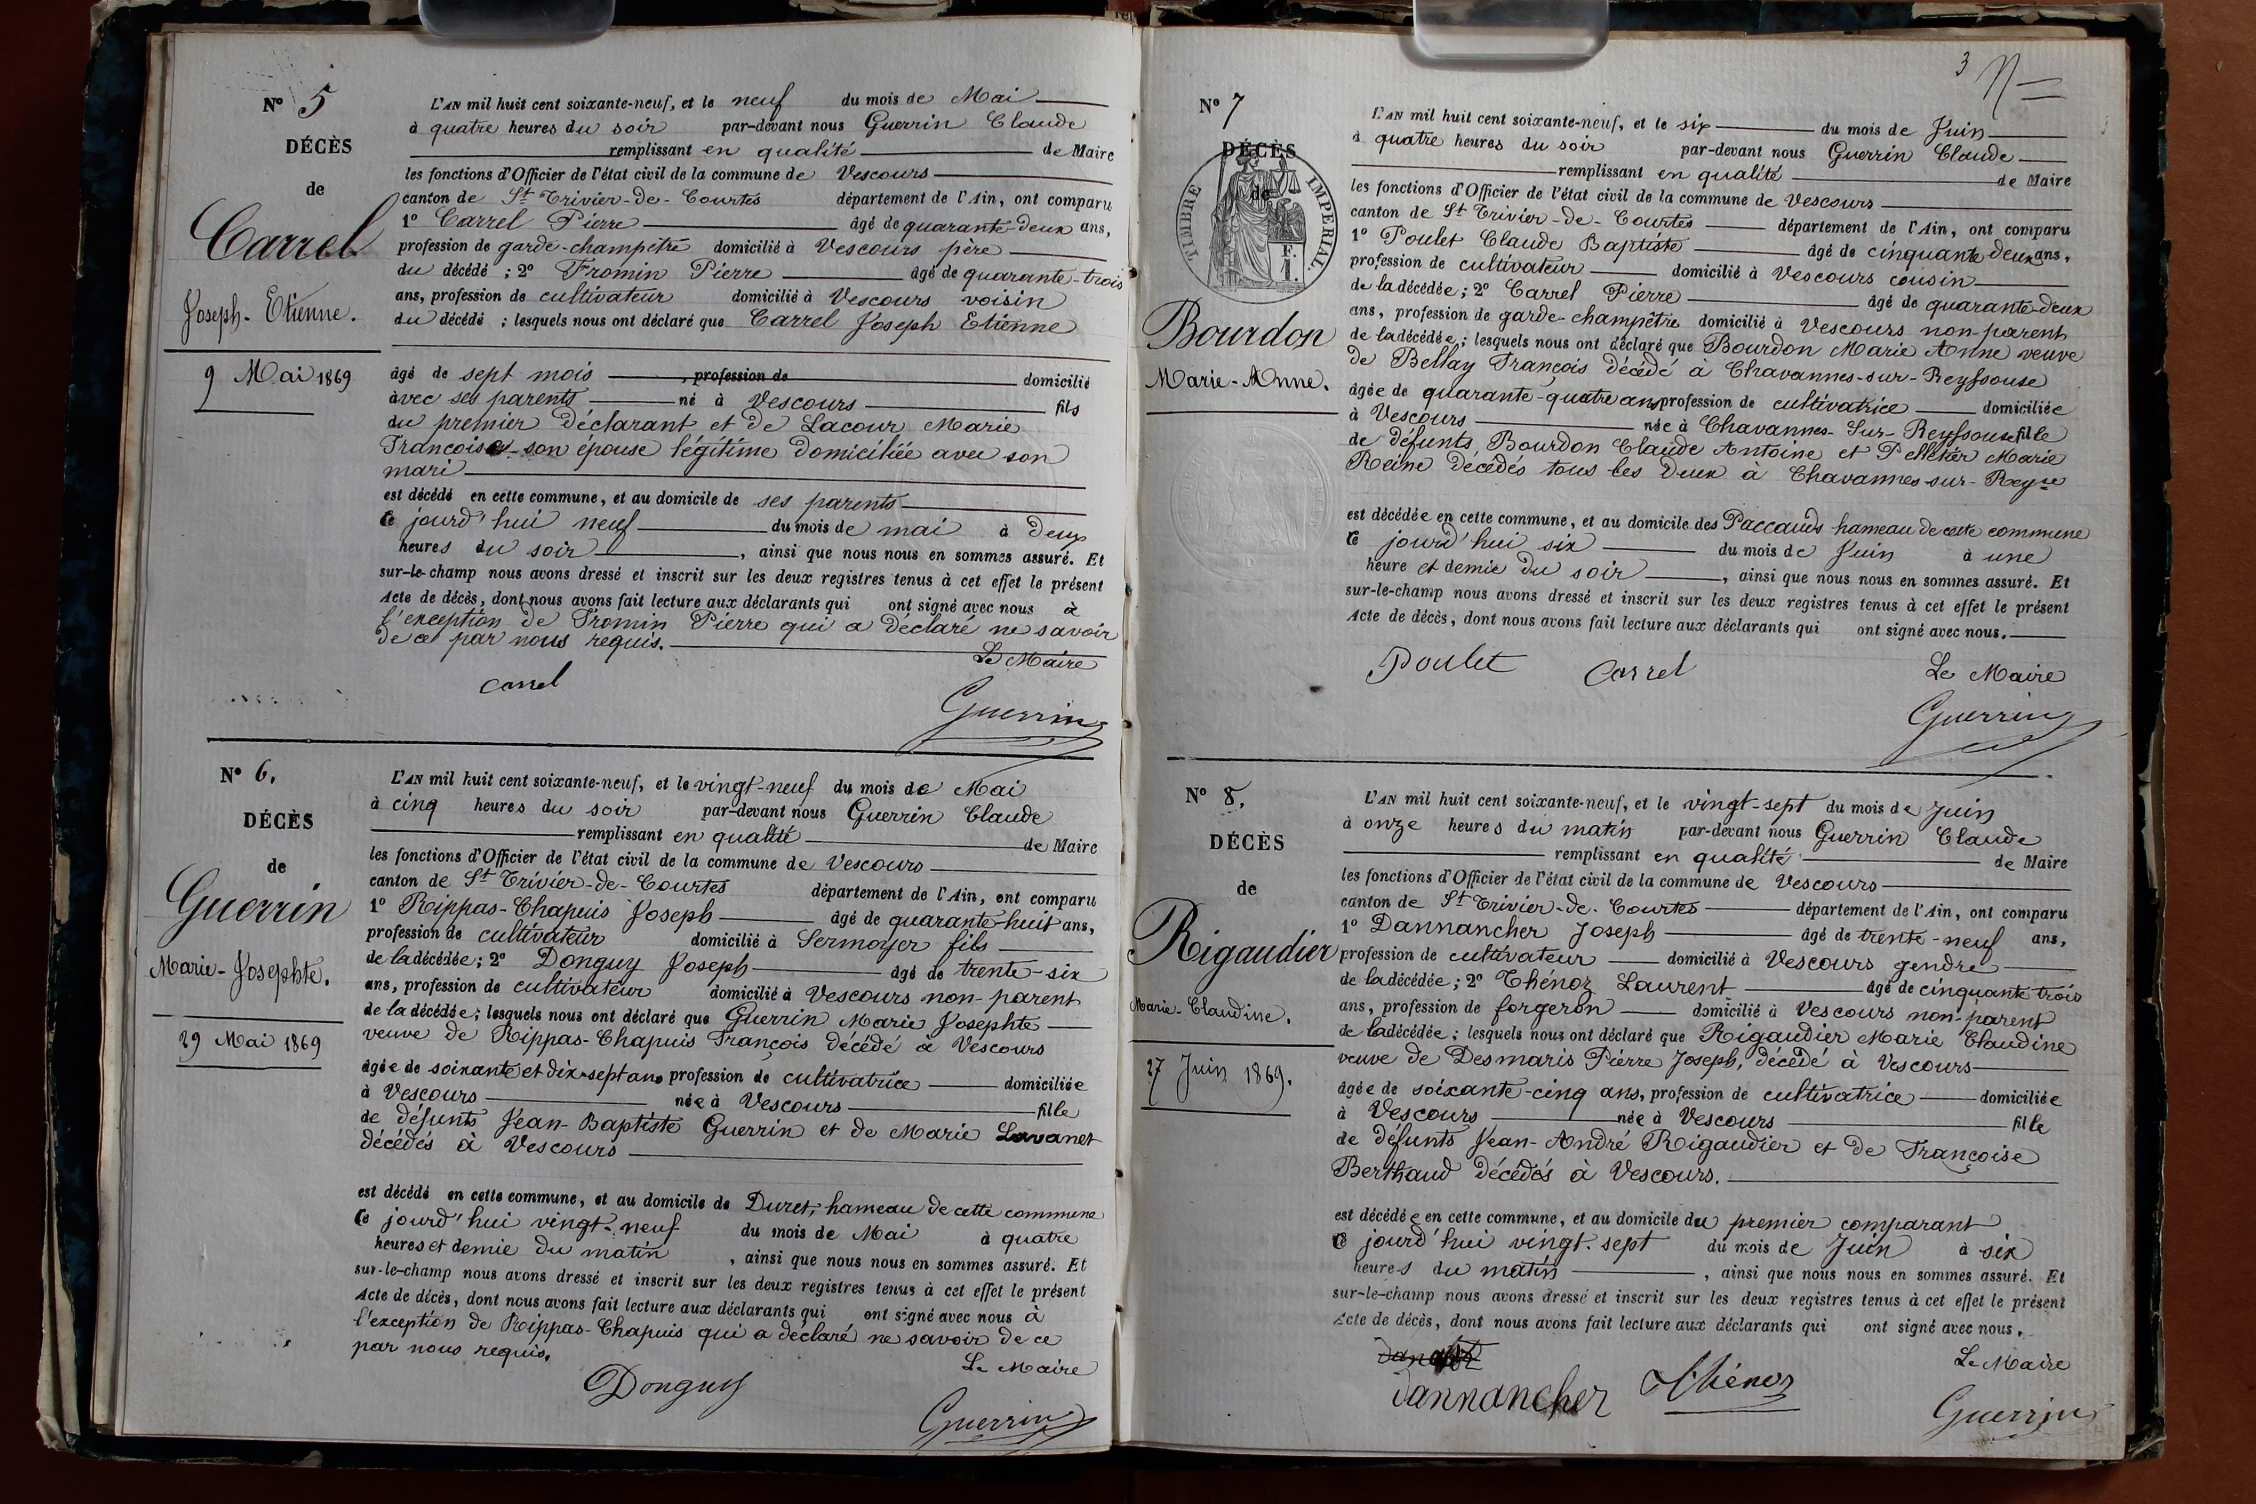 N° 5
DÉCÈS
de
Carrel
Joseph-Etienne.
9 Mai 1869
L'AN mil huit cent soixante-neuf, et le neuf du mois de Mai
à quatre heures du soir par-devant nous Guerrin Claude
remplissant en qualité de Maire
les fonctions d'Officier de l'état civil de la commune de Vescours
canton de St Trivier-de-Courtes département de l'Ain, ont comparu
1° Carrel Pierre âgé de quarante-deux ans,
profession de garde-champêtre domicilié à Vescours père
du décédé ; 2° Fromin Pierre âgé de quarante-trois
ans, profession de cultivateur domicilié à Vescours voisin
du décédé ; lesquels nous ont déclaré que Carrel Joseph Etienne
âgé de sept mois profession de domicilié
avec ses parents né à Vescours fils
du premier déclarant et de Lacour Marie
Françoise son épouse légitime domiciliée avec son
mari
est décédé en cette commune, et au domicile de ses parents
ce jourd'hui neuf du mois de mai à deux
heures du soir, ainsi que nous nous en sommes assuré. Et
sur-le-champ nous avons dressé et inscrit sur les deux registres tenus à cet effet le présent
Acte de décès, dont nous avons fait lecture aux déclarants qui ont signé avec nous à
l'exception de Fromin Pierre qui a déclaré ne savoir
de ce par nous requis.
Le Maire
Carrel
Guerrin
N° 6.
DÉCÈS
de
Guerrin
Marie-Josephte.
29 Mai 1869
L'AN mil huit cent soixante-neuf, et le vingt-neuf du mois de Mai
à cinq heures du soir par-devant nous Guerrin Claude
remplissant en qualité de Maire
les fonctions d'Officier de l'état civil de la commune de Vescours
canton de St Trivier-de-Courtes département de l'Ain, ont comparu
1° Rippas-Chapuis Joseph âgé de quarante-huit ans,
profession de cultivateur domicilié à Sermoyer fils
de la décédée; 2° Donguy Joseph âgé de trente-six
ans, profession de cultivateur domicilié à Vescours non-parent
de la décédée; lesquels nous ont déclaré que Guerrin Marie Josephte
veuve de Rippas-Chapuis François décédé à Vescours
âgée de soixante et dix-sept ans profession de cultivatrice domiciliée
à Vescours née à Vescours fille
de défunts Jean-Baptiste Guerrin et de Marie Lavanet
décédés à Vescours
est décédé en cette commune, et au domicile de Duret, hameau de cette commune
ce jourd'hui vingt-neuf du mois de Mai à quatre
heures et demie du matin, ainsi que nous nous en sommes assuré. Et
sur-le-champ nous avons dressé et inscrit sur les deux registres tenus à cet effet le présent
Acte de décès, dont nous avons fait lecture aux déclarants qui ont signé avec nous à
l'exception de Rippas-Chapuis qui a déclaré ne savoir de ce
par nous requis.
Le Maire
Donguy
Guerrin
3
N° 7
DÉCÈS
de
TIMBRE IMPERIAL.
F.
1.
Bourdon
Marie-Anne.
L'AN mil huit cent soixante-neuf, et le six du mois de Juin
à quatre heures du soir par-devant nous Guerrin Claude
remplissant en qualité de Maire
les fonctions d'Officier de l'état civil de la commune de Vescours
canton de St Trivier-de-Courtes département de l'Ain, ont comparu
1° Poulet Claude Baptiste âgé de cinquante deux ans,
profession de cultivateur domicilié à Vescours cousin
de la décédée; 2° Carrel Pierre âgé de quarante-deux
ans, profession de garde-champêtre domicilié à Vescours non-parent
de la décédée; lesquels nous ont déclaré que Bourdon Marie Anne veuve
de Bellay François décédé à Chavannes-sur-Reyssouse
âgée de quarante-quatre ans profession de cultivatrice domiciliée
à Vescours née à Chavannes-Sur-Reyssouse fille
de défunts Bourdon Claude Antoine et Pelletier Marie
Reine décédés tous les deux à Chavannes-sur-Reyse
est décédée en cette commune, et au domicile des Paccauds hameau de cette commune
ce jourd'hui six du mois de Juin à une
heure et demie du soir, ainsi que nous nous en sommes assuré. Et
sur-le-champ nous avons dressé et inscrit sur les deux registres tenus à cet effet le présent
Acte de décès, dont nous avons fait lecture aux déclarants qui ont signé avec nous.
Poulet Carrel Le Maire
Guerrin
N° 8.
DÉCÈS
de
Rigaudier
Marie-Claudine.
27 Juin 1869.
L'AN mil huit cent soixante-neuf, et le vingt-sept du mois de Juin
à onze heures du matin par-devant nous Guerrin Claude
remplissant en qualité de Maire
les fonctions d'Officier de l'état civil de la commune de Vescours
canton de St Trivier-de-Courtes département de l'Ain, ont comparu
1° Dannancher Joseph âgé de trente-neuf ans,
profession de cultivateur domicilié à Vescours gendre
de la décédée; 2° Thénoz Laurent âgé de cinquante trois
ans, profession de forgeron domicilié à Vescours non-parent
de la décédée; lesquels nous ont déclaré que Rigaudier Marie Claudine
veuve de Desmaris Pierre Joseph, décédé à Vescours
âgée de soixante-cinq ans, profession de cultivatrice domiciliée
à Vescours née à Vescours fille
de défunts Jean-André Rigaudier et de Françoise
Berthaud décédés à Vescours.
est décédée en cette commune, et au domicile du premier comparant
ce jourd'hui vingt-sept du mois de Juin à six
heures du matin, ainsi que nous nous en sommes assuré. Et
sur-le-champ nous avons dressé et inscrit sur les deux registres tenus à cet effet le présent
Acte de décès, dont nous avons fait lecture aux déclarants qui ont signé avec nous.
Le Maire
Dannancher Thénoz
Guerrin